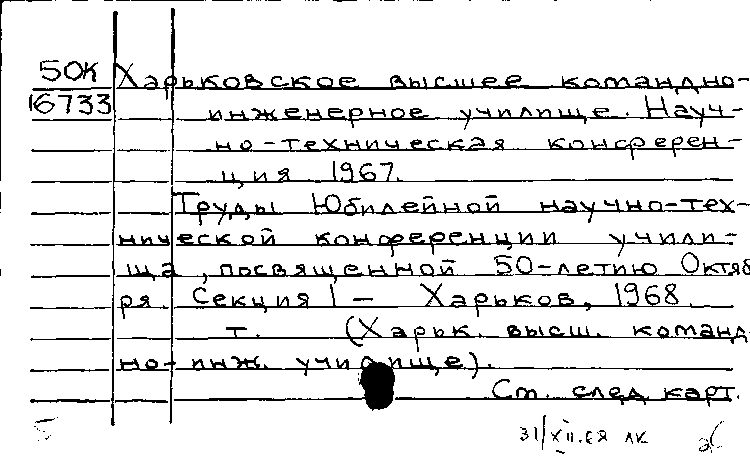 50К Харьковское высшее командно-
16733 инженерное училище. Науч-
но-техническая конферен-
ция 1967.
Труды Юбилейной научно-тех-
нической конференции учили-
ща, посвященной 50-летию Октяб
ря. Секция 1 – Харьков, 1968.
т. (Харьк. высш. команд
но-инж. училище).
См. след карт.
31/XII.68 ЛК